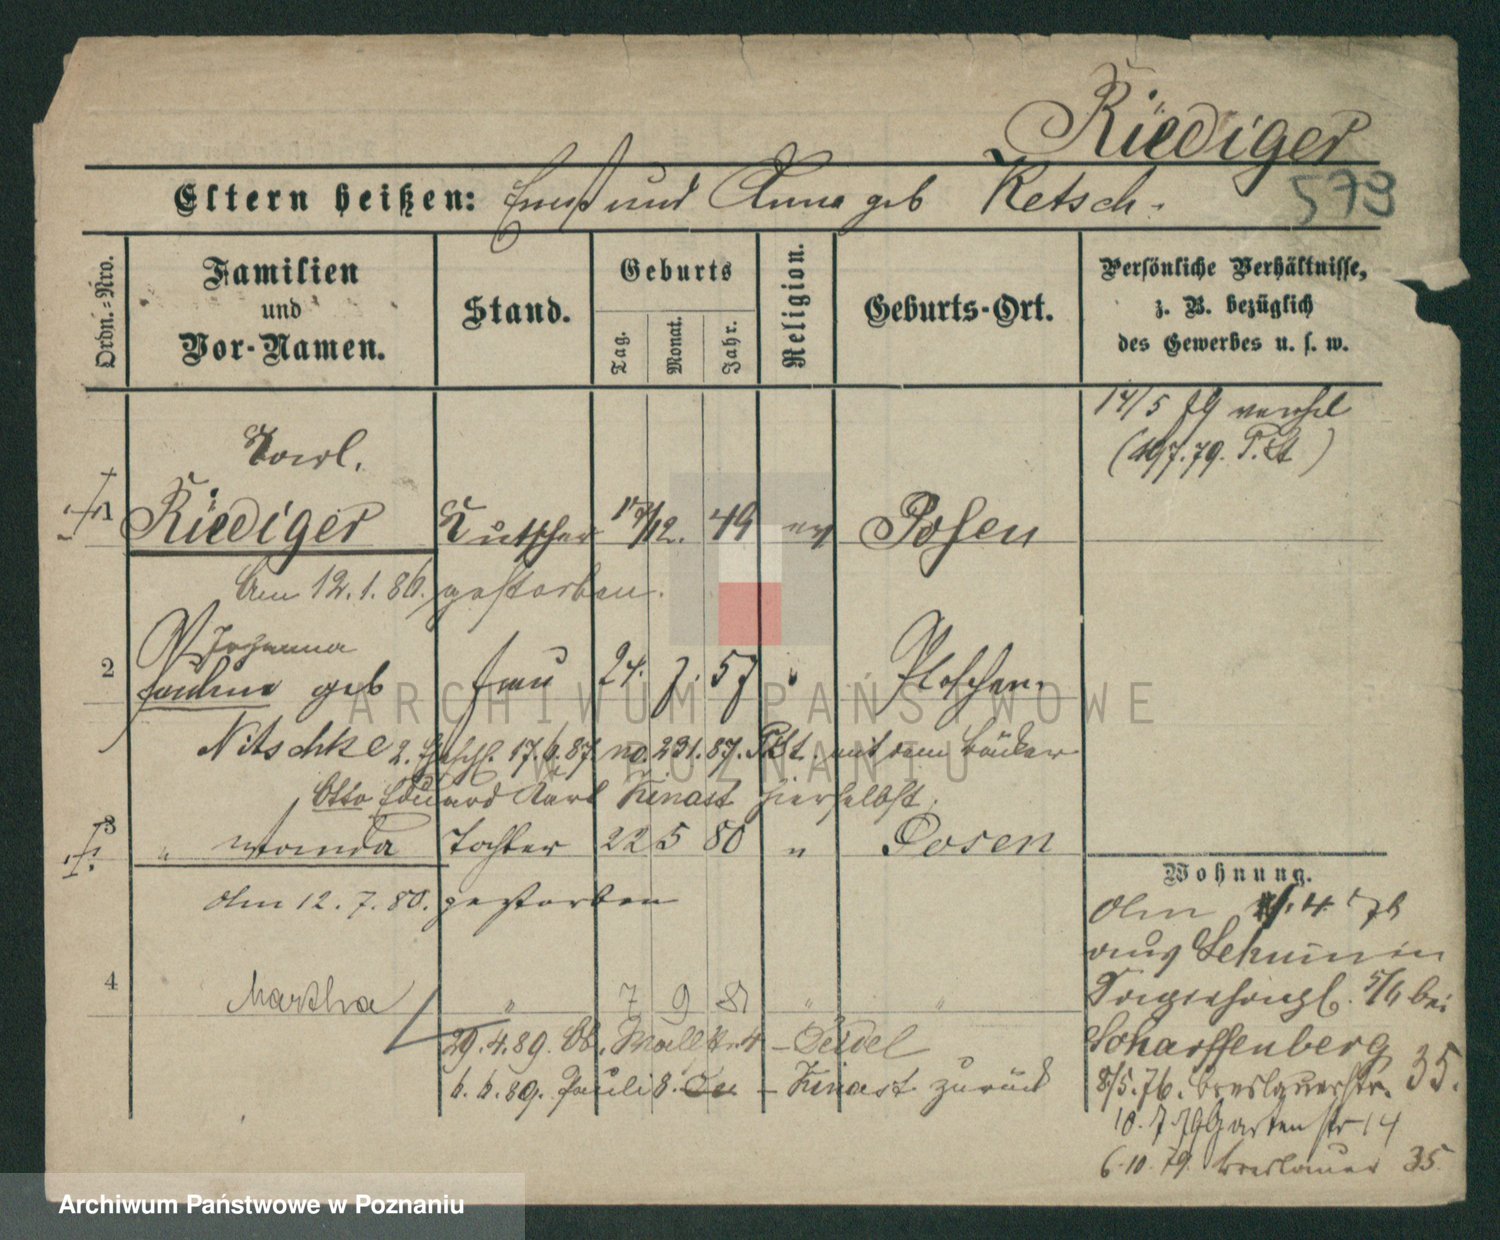 Riediger
579
Eltern heißen: Ernst und Anna geb Ketsch.
Ordn.-Nro.
Familien
und
Vor-Namen.
Stand.
Geburts
Tag. Monat. Jahr.
Religion.
Geburts-Ort.
Persönliche Verhältnisse,
z. B. bezüglich
des Gewerbes u. s. w.
14/5 79
(197.79. P.St)
Karl.
1 Riediger Kutscher 17/12. 49 ev Posen
Am 12.1.86. gestorben.
Johanna
2 Pauline geb Frau 24. 7. 57 " Pleschen.
Nitschke 2. 17.6.87. no. 231.87. PSt. mit dem Bäcker
Otto Eduard Karl Kinast hierselbst.
3 " Wanda Tochter 22 5 80 " Posen
Am 12.7.80. gestorben
4 Martha " 7 9 81 " "
29.4.89. Ob. Wallstr. 4 – Seidel
6.6.89. Pauli 8. – Kinast zurück
Wohnung.
Am 4. 76
aus
5/4 bei
Scharffenberg
8/5.76. Breslauerstr. 35.
10.7.79 Gartenstr 14
6.10.79. Breslauer 35.
ARCHIWUM PAŃSTWOWE
W POZNANIU
Archiwum Państwowe w Poznaniu